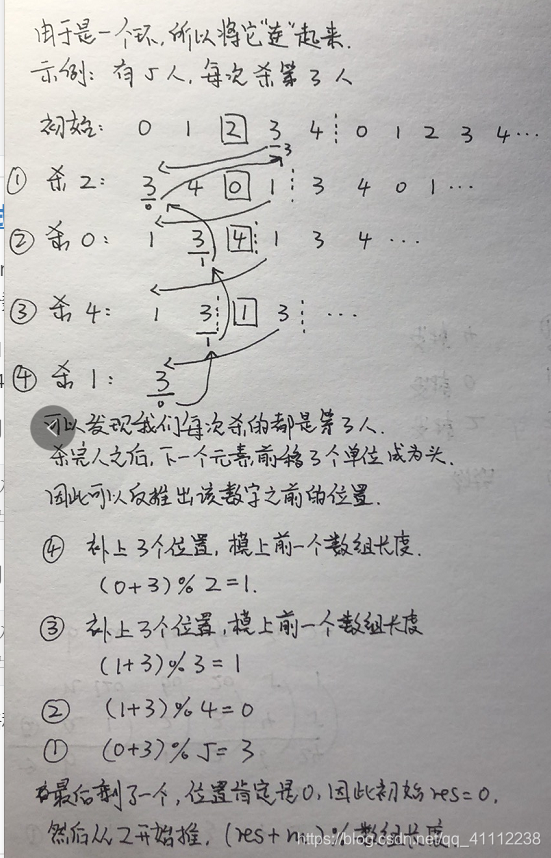 由于是一个环,所以将它"连"起来.
示例: 有5人,每次杀第3人
初始: 0 1 2 3 4 0 1 2 3 4...
-3
① 杀2: 3 4 0 1 3 4 0 1 ...
0
② 杀0: 1 3 4 1 3 4 ...
1
③ 杀4: 1 3 1 3 ...
1
④ 杀1: 3
0
可以发现我们每次杀的都是第3人.
杀完人之后,下一个元素前移3个单位成为头.
因此可以反推出该数字之前的位置.
④ 补上3个位置,模上前一个数组长度.
(0+3)%2=1.
③ 补上3个位置,模上前一个数组长度
(1+3)%3=1
② (1+3)%4=0
① (0+3)%5=3
最后剩了一个,位置肯定是0,因此初始res=0,
然后从2开始推, (res+m)%数组长度
https://blog.csdn.net/qq_41112238